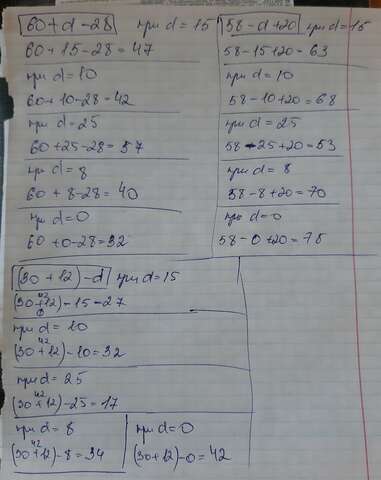 60+d-28 при d=15
60+15-28=47
при d=10
60+10-28=42
при d=25
60+25-28=57
при d=8
60+8-28=40
при d=0
60+0-28=32
58-d+20 при d=15
58-15+20=63
при d=10
58-10+20=68
при d=25
58-25+20=53
при d=8
58-8+20=70
при d=0
58-0+20=78
(30+12)-d при d=15
42
(30+12)-15-27
при d=10
42
(30+12)-10=32
при d=25
42
(30+12)-25=17
при d=8
42
(30+12)-8=34
при d=0
(30+12)-0=42